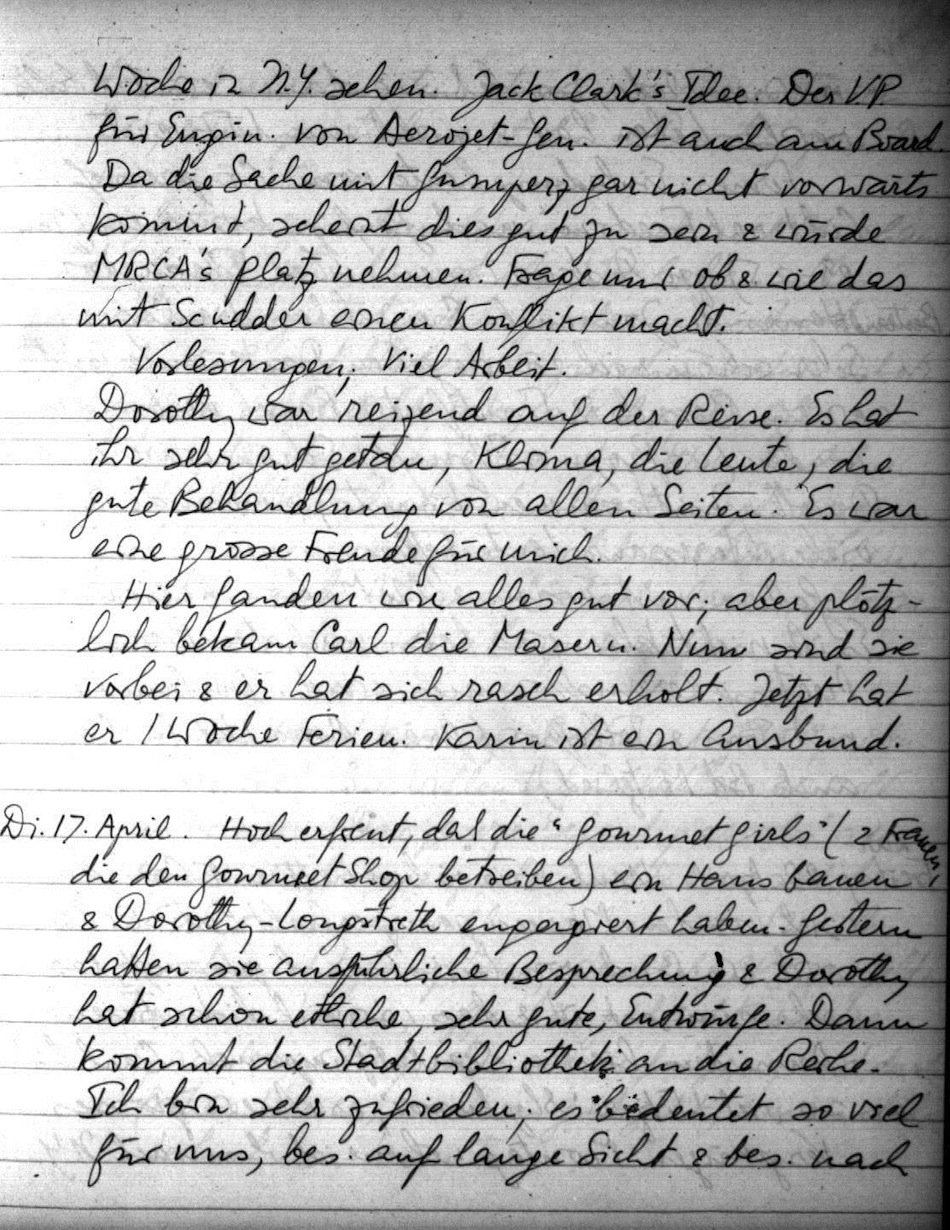 Woche in N.Y. sehen. Jack Clark's Idee. Der V.P.
für Engin. von Aerojet-Gen. ist auch am Board.
Da die Sache mit Gumperz gar nicht vorwärts
kommt, scheint dies gut zu sein & würde
MRCA's Platz nehmen. Frage nur ob & wie das
mit Scudder einen Konflikt macht.
Vorlesungen; viel Arbeit.
Dorothy war reizend auf der Reise. Es hat
ihr sehr gut getan, Klima, die Leute, die
gute Behandlung von allen Seiten. Es war
eine grosse Freude für mich.
Hier fanden wir alles gut vor; aber plötz-
lich bekam Carl die Masern. Nun sind sie
vorbei & er hat sich rasch erholt. Jetzt hat
er 1 Woche Ferien. Karin ist ein Ausbund.
Di. 17. April. Hoch erfreut, daß die "gourmet girls" (2 Frauen,
die den Gourmet Shop betreiben) ein Haus bauen
& Dorothy-Longstreth engagiert haben. Gestern
hatten sie ausführliche Besprechung & Dorothy
hat schon etliche, sehr gute, Entwürfe. Dann
kommt die Stadtbibliothek an die Reihe.
Ich bin sehr zufrieden; es bedeutet so viel
für uns, bes. auf lange Sicht & bes. nach